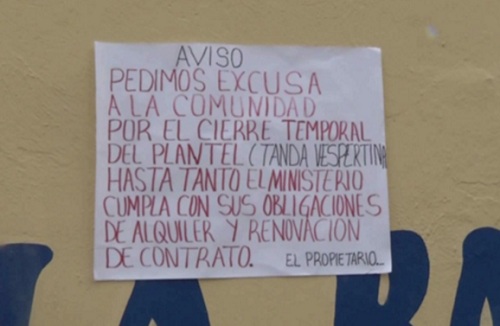 AVISO
PEDIMOS EXCUSA
A LA COMUNIDAD
POR EL CIERRE TEMPORAL
DEL PLANTEL (TANDA VESPERTINA
HASTA TANTO EL MINISTERIO
CUMPLA CON SUS OBLIGACIONES
DE ALQUILER Y RENOVACION
DE CONTRATO. EL PROPIETARIO...